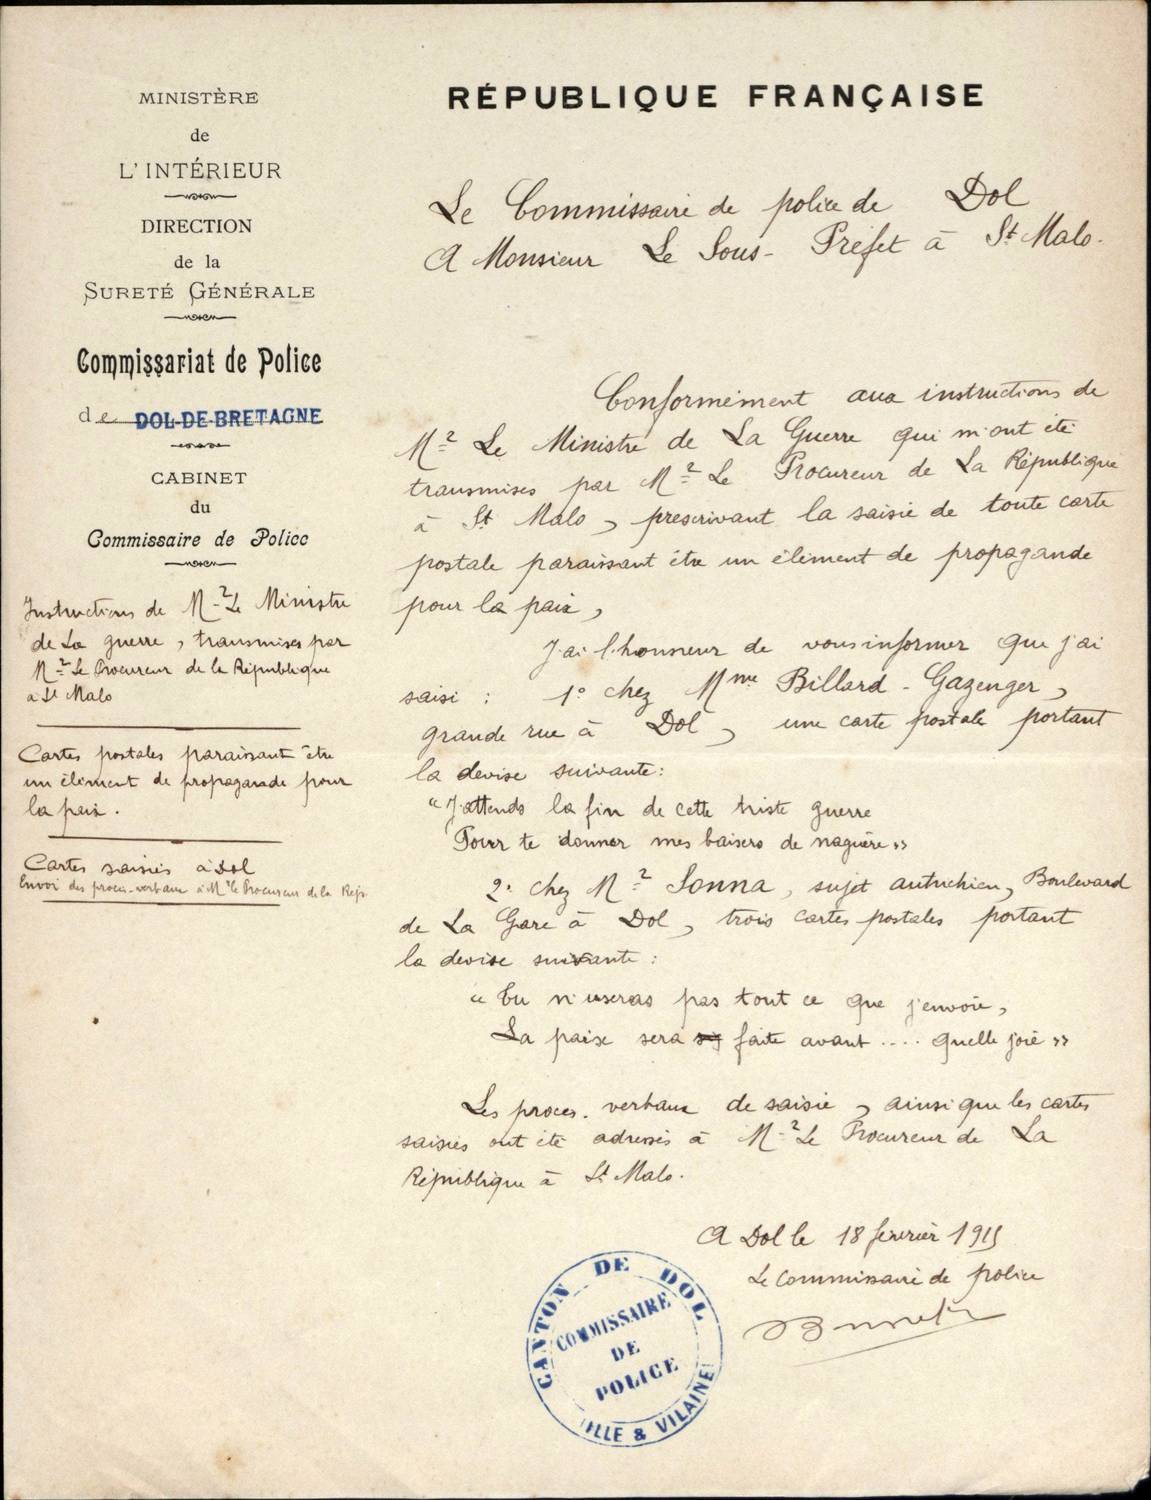 MINISTÈRE
de
L'INTÉRIEUR
DIRECTION
de la
SURETÉ GÉNÉRALE
Commissariat de Police
de DOL-DE-BRETAGNE
CABINET
du
Commissaire de Police
Instructions de Mr Le Ministre
de La guerre, transmises par
Mr Le Procureur de la République
à St Malo
Cartes postales paraissant être
un élément de propagande pour
la paix.
Cartes saisies à Dol
Envoi des procès-verbaux à Mr le Procureur de la Rép.
RÉPUBLIQUE FRANÇAISE
Le Commissaire de police de Dol
A Monsieur Le Sous-Préfet à St Malo.
Conformément aux instructions de
Mr Le Ministre de La Guerre qui m'ont été
transmises par Mr Le Procureur de La République
à St Malo, prescrivant la saisie de toute carte
postale paraissant être un élément de propagande
pour la paix,
J'ai l'honneur de vous informer que j'ai
saisi : 1° chez Mme Billard-Gazenger,
grande rue à Dol, une carte postale portant
la devise suivante :
"J'attends la fin de cette triste guerre
Pour te donner mes baisers de naguère"
2° chez Mr Sonna, sujet autrichien, Boulevard
de La Gare à Dol, trois cartes postales portant
la devise suivante :
"Tu n'useras pas tout ce que j'envoie,
La paix sera faite avant .... quelle joie"
Les procès-verbaux de saisie, ainsi que les cartes
saisies ont été adressés à Mr Le Procureur de La
République à St Malo.
A Dol le 18 février 1915
Le Commissaire de police
CANTON DE DOL
COMMISSAIRE
DE
POLICE
ILLE & VILAINE